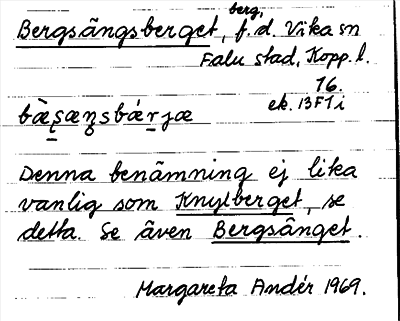 berg,
Bergsängsberget, f.d. Vika sn
Falu stad, Kopp. l.
16.
bæ̀s̠æŋ̠sbǽr̠jæ ek. 13F1i
Denna benämning ej lika
vanlig som Knylberget, se
detta. Se även Bergsänget.
Margareta Andér 1969.